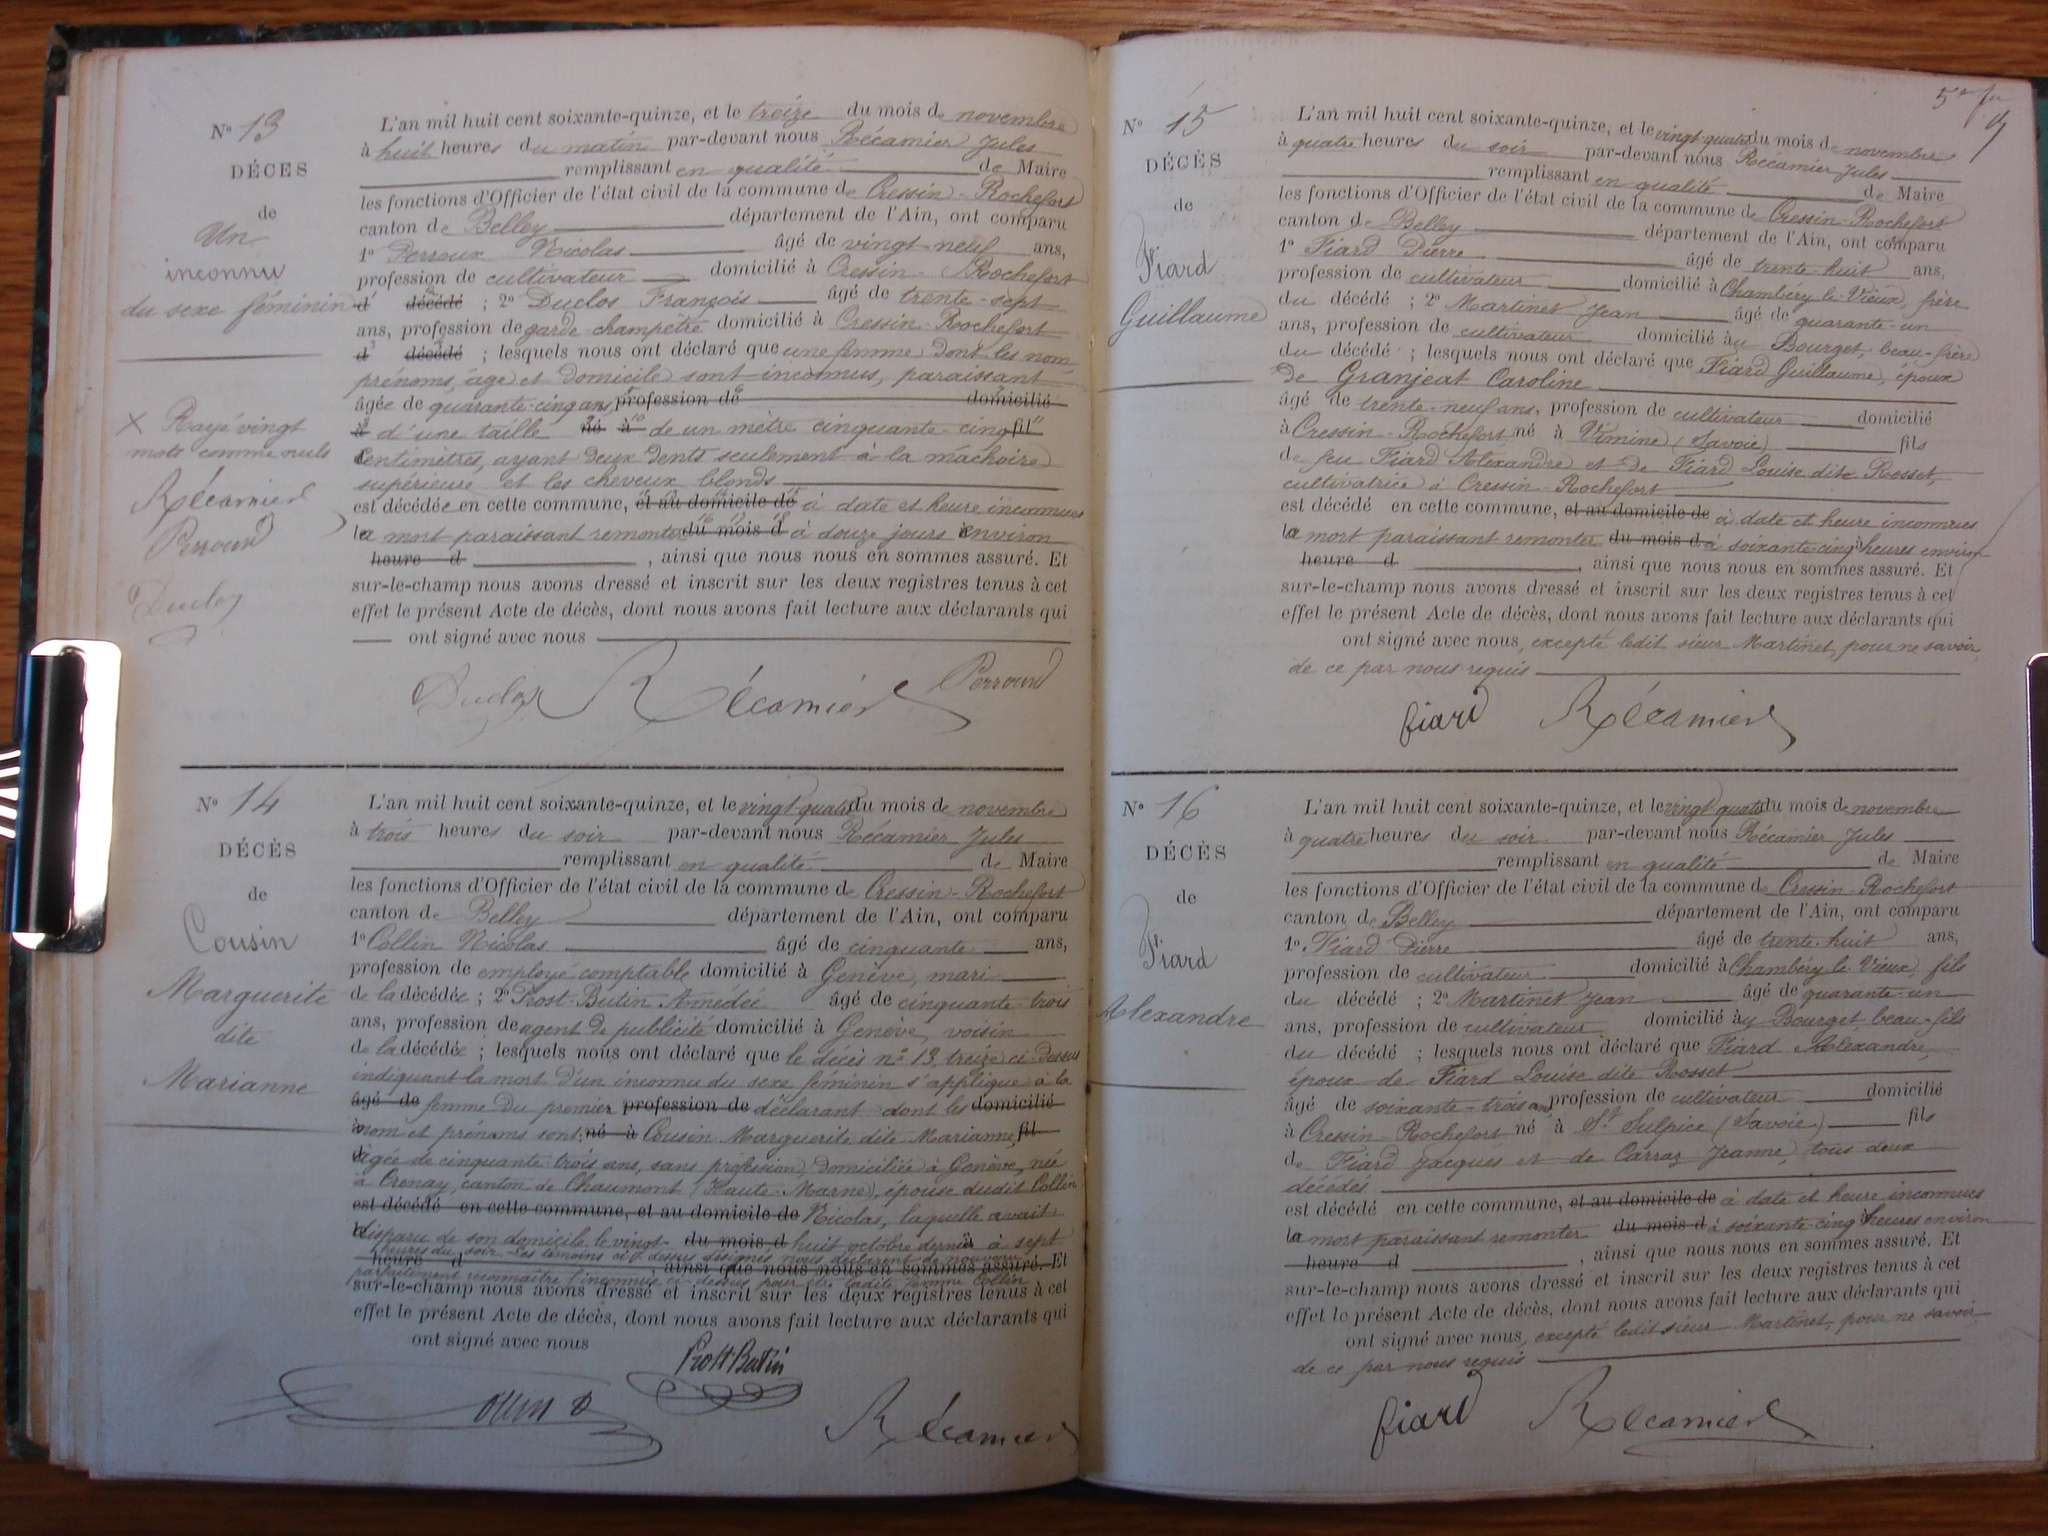 N° 13
DÉCES
de
Un
inconnu
du sexe féminin
× Rayé vingt
mots comme nuls
Récamier
Perroux
Duclos
L'an mil huit cent soixante-quinze, et le treize du mois de novembre
à huit heures du matin par-devant nous Récamier Jules
remplissant en qualité de Maire
les fonctions d'Officier de l'état civil de la commune de Cressin-Rochefort
canton de Belley département de l'Ain, ont comparu
1° Perroux Nicolas âgé de vingt-neuf ans,
profession de cultivateur domicilié à Cressin-Rochefort
d décédé ; 2° Duclos François âgé de trente-sept
ans, profession de garde champêtre domicilié à Cressin-Rochefort
d décédé ; lesquels nous ont déclaré que une femme dont les nom,
prénoms, âge et domicile sont inconnus, paraissant
âgée de quarante-cinq ans, profession de domicilié
à d'une taille né à de un mètre cinquante-cinq fil
centimètres, ayant deux dents seulement à la machoire
supérieure et les cheveux blonds
est décédée en cette commune, et au domicile de à date et heure inconnues
la mort paraissant remonter du mois d à douze jours environ
heure d , ainsi que nous nous en sommes assuré. Et
sur-le-champ nous avons dressé et inscrit sur les deux registres tenus à cet
effet le présent Acte de décès, dont nous avons fait lecture aux déclarants qui
ont signé avec nous
Duclos Récamier Perroux
N° 14
DÉCÈS
de
Cousin
Marguerite
dite
Marianne
L'an mil huit cent soixante-quinze, et le vingt-quatre du mois de novembre
à trois heures du soir par-devant nous Récamier Jules
remplissant en qualité de Maire
les fonctions d'Officier de l'état civil de la commune de Cressin-Rochefort
canton de Belley département de l'Ain, ont comparu
1° Collin Nicolas âgé de cinquante ans,
profession de employé comptable domicilié à Genève, mari
de la décédée ; 2° Prost-Butin Amédée âgé de cinquante-trois
ans, profession de agent de publicité domicilié à Genève, voisin
de la décédée ; lesquels nous ont déclaré que le décès n° 13, treize ci-dessus
indiquant la mort d'un inconnu du sexe féminin s'applique à la
âgé de femme du premier profession de déclarant dont les domicilié
nom et prénoms sont: né à Cousin Marguerite dite Marianne, fil
âgée de cinquante trois ans, sans profession, domiciliée à Genève, née
à Crenay, canton de Chaumont (Haute-Marne), épouse dudit Collin
est décédé en cette commune, et au domicile de Nicolas, laquelle avait
disparu de son domicile le vingt- du mois d huit octobre dernier à sept
heures du soir. Les témoins ci-dessus désignés nous déclarent de nouveau
heure d , ainsi que nous nous en sommes assuré. Et
parfaitement reconnaître l'inconnue ci-dessus pour être ladite femme Collin
sur-le-champ nous avons dressé et inscrit sur les deux registres tenus à cet
effet le présent Acte de décès, dont nous avons fait lecture aux déclarants qui
ont signé avec nous
Prost-Butin
Récamier
N° 15
DÉCÈS
de
Fiard
Guillaume
L'an mil huit cent soixante-quinze, et le vingt-quatre du mois de novembre
à quatre heures du soir par-devant nous Récamier Jules
remplissant en qualité de Maire
les fonctions d'Officier de l'état civil de la commune de Cressin-Rochefort
canton de Belley département de l'Ain, ont comparu
1° Fiard Pierre âgé de trente-huit ans,
profession de cultivateur domicilié à Chambéry-le-Vieux, frère
du décédé ; 2° Martinet Jean âgé de quarante-un
ans, profession de cultivateur domicilié au Bourget, beau-frère
du décédé ; lesquels nous ont déclaré que Fiard Guillaume, époux
de Granjeat Caroline
âgé de trente-neuf ans, profession de cultivateur domicilié
à Cressin-Rochefort né à Vimine (Savoie) fils
de feu Fiard Alexandre et de Fiard Louise dite Rosset,
cultivatrice à Cressin-Rochefort
est décédé en cette commune, et au domicile de à date et heure inconnues
la mort paraissant remonter du mois d à soixante-cinq heures environ
heure d , ainsi que nous nous en sommes assuré. Et
sur-le-champ nous avons dressé et inscrit sur les deux registres tenus à cet
effet le présent Acte de décès, dont nous avons fait lecture aux déclarants qui
ont signé avec nous, excepté ledit sieur Martinet, pour ne savoir,
de ce par nous requis
fiard Récamier
N° 16
DÉCÈS
de
Fiard
Alexandre
L'an mil huit cent soixante-quinze, et le vingt-quatre du mois de novembre
à quatre heures du soir par-devant nous Récamier Jules
remplissant en qualité de Maire
les fonctions d'Officier de l'état civil de la commune de Cressin-Rochefort
canton de Belley département de l'Ain, ont comparu
1° Fiard Pierre âgé de trente-huit ans,
profession de cultivateur domicilié à Chambéry-le-Vieux, fils
du décédé ; 2° Martinet Jean âgé de quarante-un
ans, profession de cultivateur domicilié au Bourget, beau-fils
du décédé ; lesquels nous ont déclaré que Fiard Alexandre,
époux de Fiard Louise dite Rosset
âgé de soixante-trois ans, profession de cultivateur domicilié
à Cressin-Rochefort né à St Sulpice (Savoie) fils
de Fiard Jacques et de Carraz Jeanne, tous deux
décédés
est décédé en cette commune, et au domicile de à date et heure inconnues
la mort paraissant remonter du mois d à soixante-cinq heures environ
heure d , ainsi que nous nous en sommes assuré. Et
sur-le-champ nous avons dressé et inscrit sur les deux registres tenus à cet
effet le présent Acte de décès, dont nous avons fait lecture aux déclarants qui
ont signé avec nous, excepté ledit sieur Martinet, pour ne savoir,
de ce par nous requis
fiard Récamier